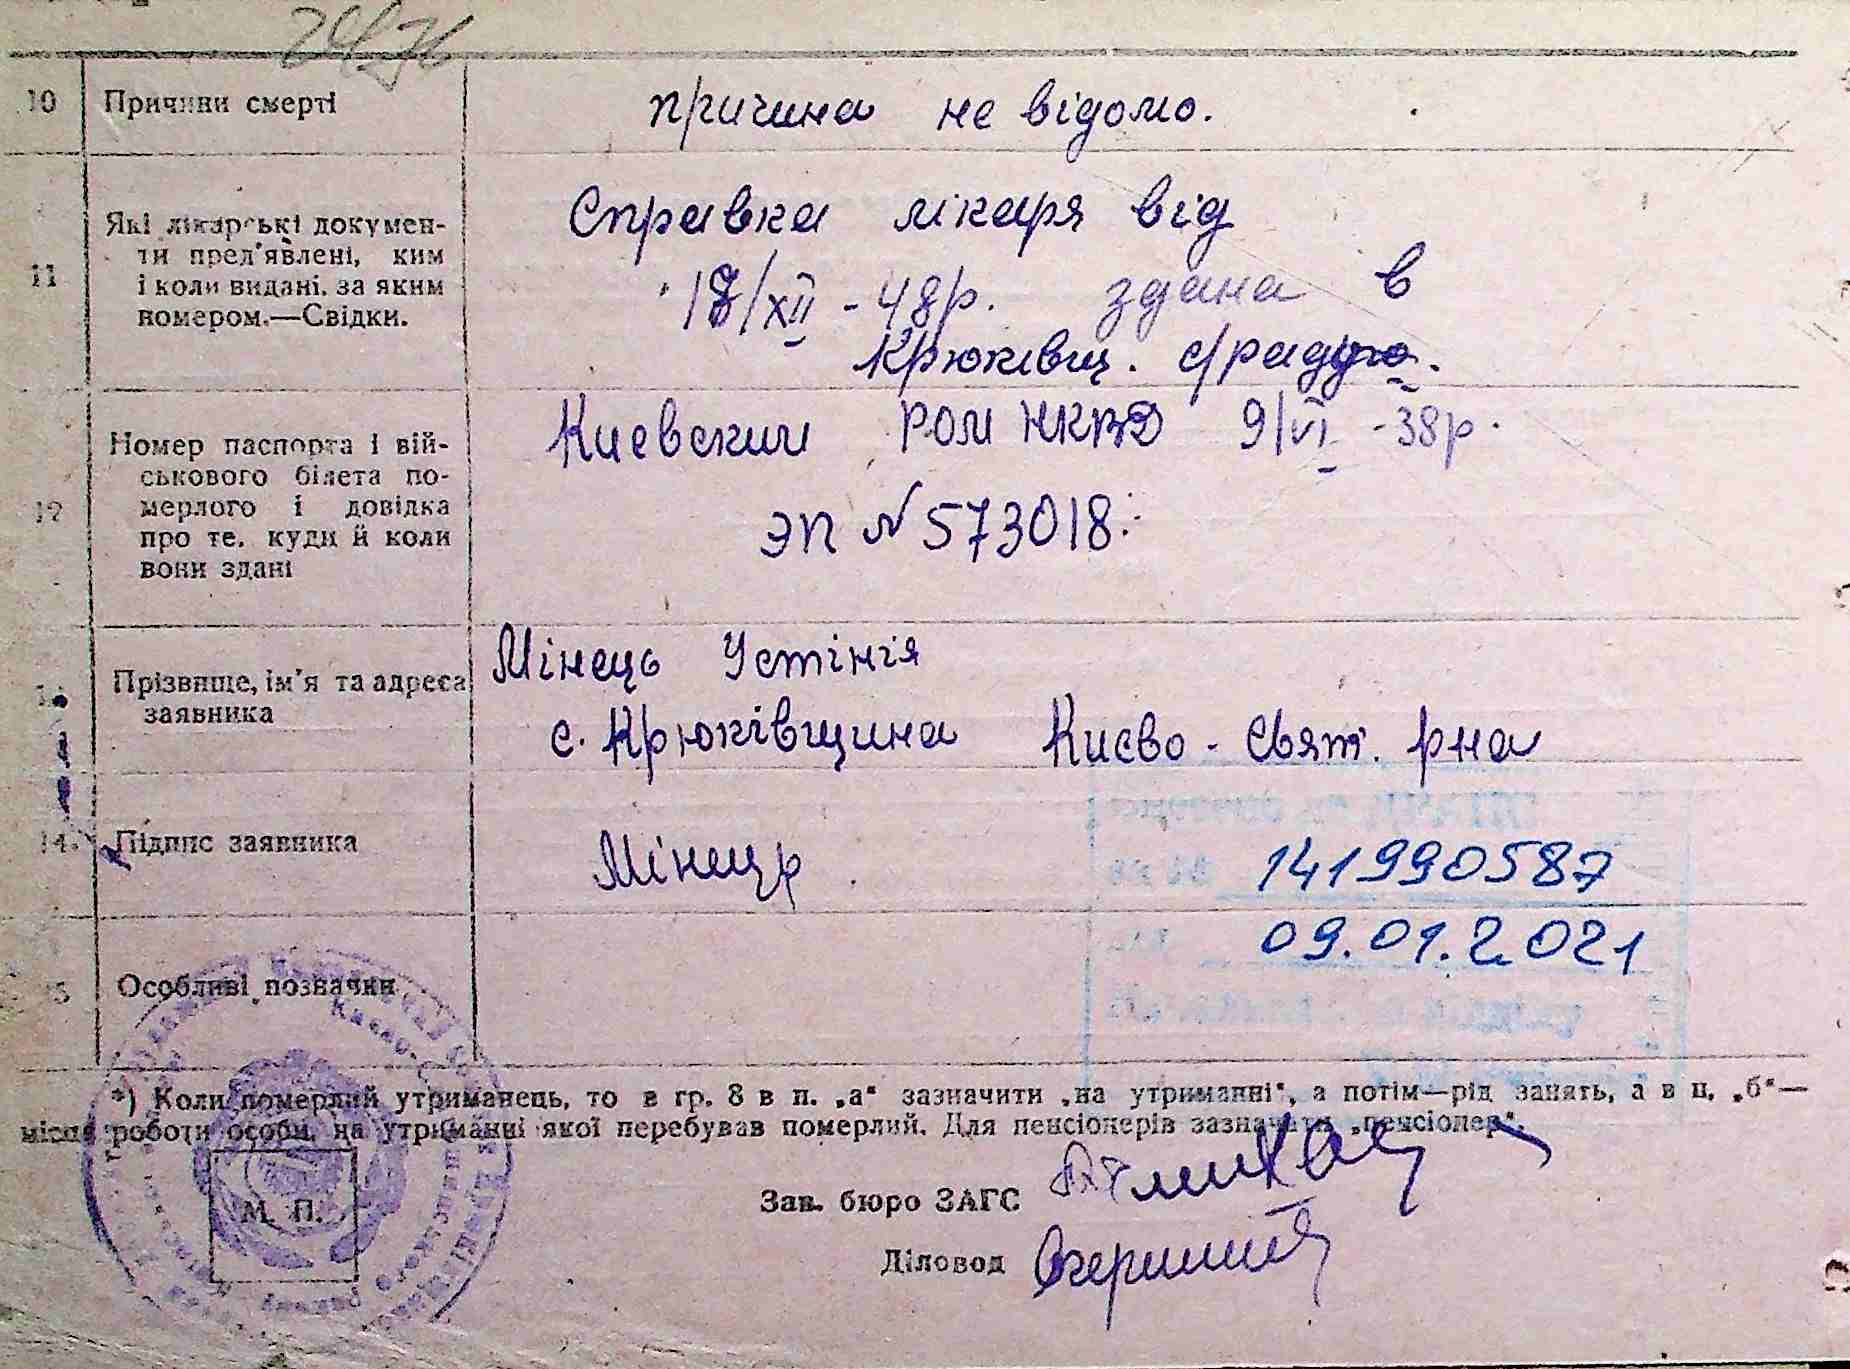 10 Причини смерті причина не відомо.
11 Які лікарські документи пред'явлені, ким і коли видані, за яким номером.—Свідки.
Справка лікаря від
18/XII - 48р. здана в
Крюківщ. с/раду.
12 Номер паспорта і військового білета померлого і довідка про те, куди й коли вони здані
Киевский РОМ НКВД 9/VI - 38р.
ЭП № 573018.
Прізвище, ім'я та адреса заявника
Мінець Устінія
с. Крюківщина Києво - Свят. рна
14. Підпис заявника Мінець
1419990587
09.01.2021
Особливі позначки
*) Коли померлий утриманець, то в гр. 8 в п. „а“ зазначити „на утриманні“, а потім—рід занять, а в п. „б“—
місце роботи особи, на утриманні якої перебував померлий. Для пенсіонерів зазначати „пенсіонер“.
Зав. бюро ЗАГС
М. П.
Діловод